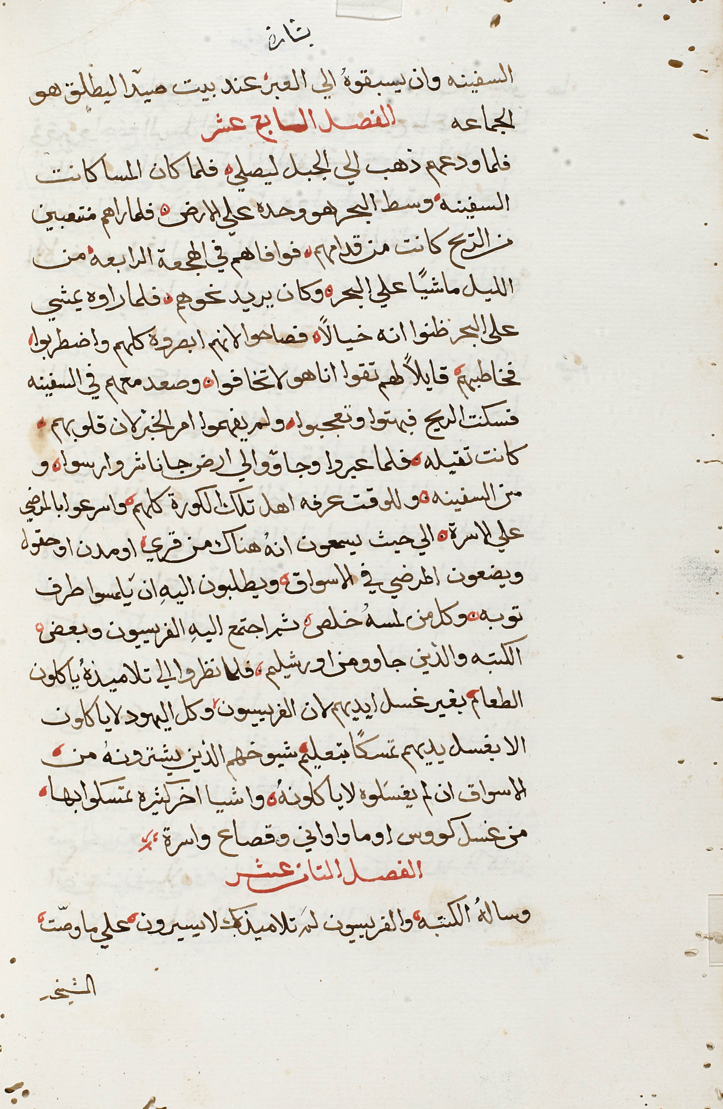 بشارة
السفينه وان يسبقوهُ الي العبر عند بيت صيدا ليطلق هو
الجماعه الفصل السابع عشر
فلما ودعهم ذهب الي الجبل ليصلي فلما كان المسا كانت
السفينه وسط البحر هو وحده علي الارض فلما راهم متعبين
من الريح كانت من قدامهم فوافاهم في الهجعة الرابعه من
الليل ماشيًا علي البحر وكان يريد نحوهم فلما راوه يمشي
علي البحر ظنوا انه خيالاً فصاحوا لانهم ابصروة كلهم واضطربوا
فخاطبهم قايلاً لهم تقوا انا هو لا تخافوا وصعد معهم في السفينه
فسكت الريح فبهتوا وتعجبوا ولم يفهموا امر الخبز لان قلوبهم
كانت تقيله فلما عبروا وجاوو الي ارض جاناشر وارسوا و
من السفينه وللوقت عرفه اهل تلك الكورة كلهم واسرعوا بالمرضي
علي الاسرة الي حيث يسمعون انهُ هناك من قري او مدن او حقول
ويضعون المرضي في الاسواق ويطلبون اليهِ ان يلمسوا طرف
توبه وكل من لمسهُ خلص ثم اجتمع اليهِ الفريسيون وبعض
الكتبه والذين جاوو من اورشليم فلما نظروا الي تلاميذهُ ياكلون
الطعام بغير غسل ايديهم لان الفريسيون وكل اليهود لا ياكلون
الا بغسل يديهم تمسكًا بتعليم شيوخهم الذين يشترونهُ من
الاسواق ان لم يغسلوه لا ياكلونهُ واشيا اخر كثيره تمسكوا بها
من غسل كووس اوما واواني وقصاع واسرة
الفصل التامن عشر
وسالهُ الكتبه والفريسيون لمَ تلاميذك لا يسيرون علي ما وصّت